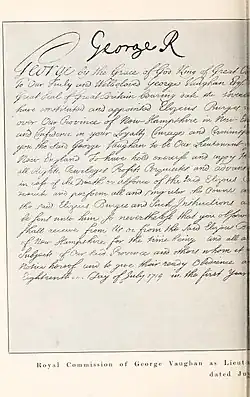 George R
George by the Grace of God King of Great
To Our Trusty and Welbeloved George Vaughan
Great Seal of Great Britain bearing date the
have constituted and appointed Elizeus Burges
over Our Province of New Hampshire in New
and Confidence in your Loyalty Courage and
you the said George Vaughan to be Our Lieutenant
New England To have hold exercise and enjoy
all Rights Priviledges Profits Perquisites and
in case of the Death or absence of the said Elizeus
execute and perform all and singular the Powers
the said Elizeus Burges and Such Instructions as
be sent unto him So nevertheless that you
shall receive from Us or from the said Elizeus
of New Hampshire for the time being and all
Subjects of Our said Province and others whom it
Notice hereof and to give their ready Obedience
Eighteenth Day of July in the first Year
Royal Commission of George Vaughan as
dated